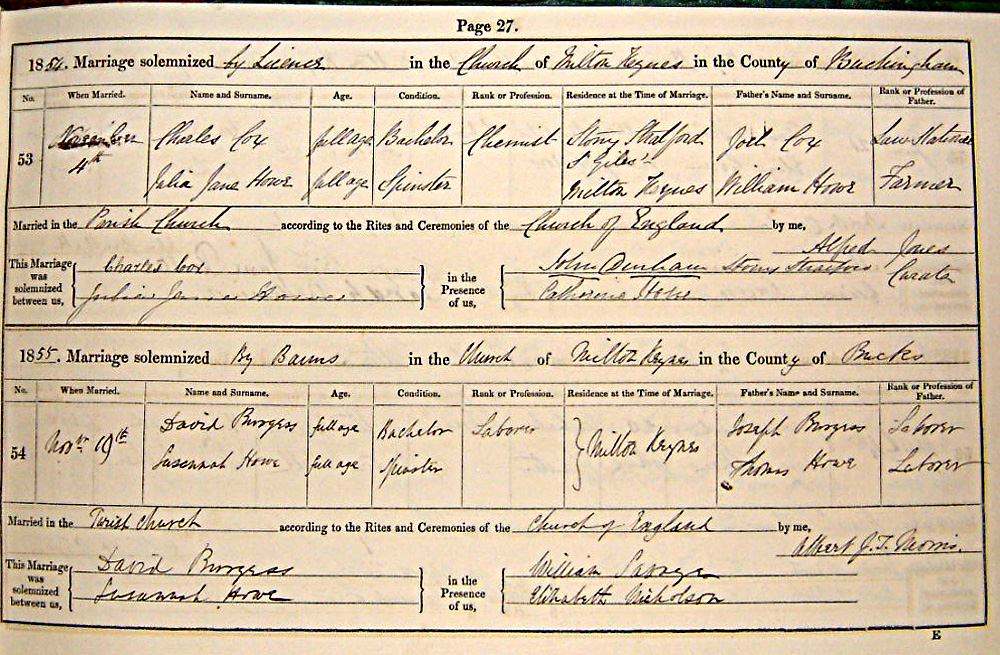 Page 27.
1854. Marriage solemnized by Licence in the Church of Milton Keynes in the County of Buckingham
No. When Married. Name and Surname. Age. Condition. Rank or Profession. Residence at the Time of Marriage. Father's Name and Surname. Rank or Profession of Father.
53 November 4th Charles Cox full age Bachelor Chemist Stony Stratford St Giles Joel Cox Law Stationer
Julia Jane Howe full age Spinster Milton Keynes William Howe Farmer
Married in the Parish Church according to the Rites and Ceremonies of the Church of England by me,
Alfred Jones
Curate
This Marriage was solemnized between us, Charles Cox in the Presence of us, John Denham Stony Stratford
Julia Jane Howe Catherine Howe
1855. Marriage solemnized By Banns in the Church of Milton Keynes in the County of Bucks
No. When Married. Name and Surname. Age. Condition. Rank or Profession. Residence at the Time of Marriage. Father's Name and Surname. Rank or Profession of Father.
54 Novr 19th David Burgess full age Bachelor Laborer Milton Keynes Joseph Burgess Laborer
Susannah Howe full age Spinster Thomas Howe Laborer
Married in the Parish Church according to the Rites and Ceremonies of the Church of England by me,
Albert J. T. Morris.
This Marriage was solemnized between us, David Burgess in the Presence of us, William
Susannah Howe Elizabeth Nicholson
E